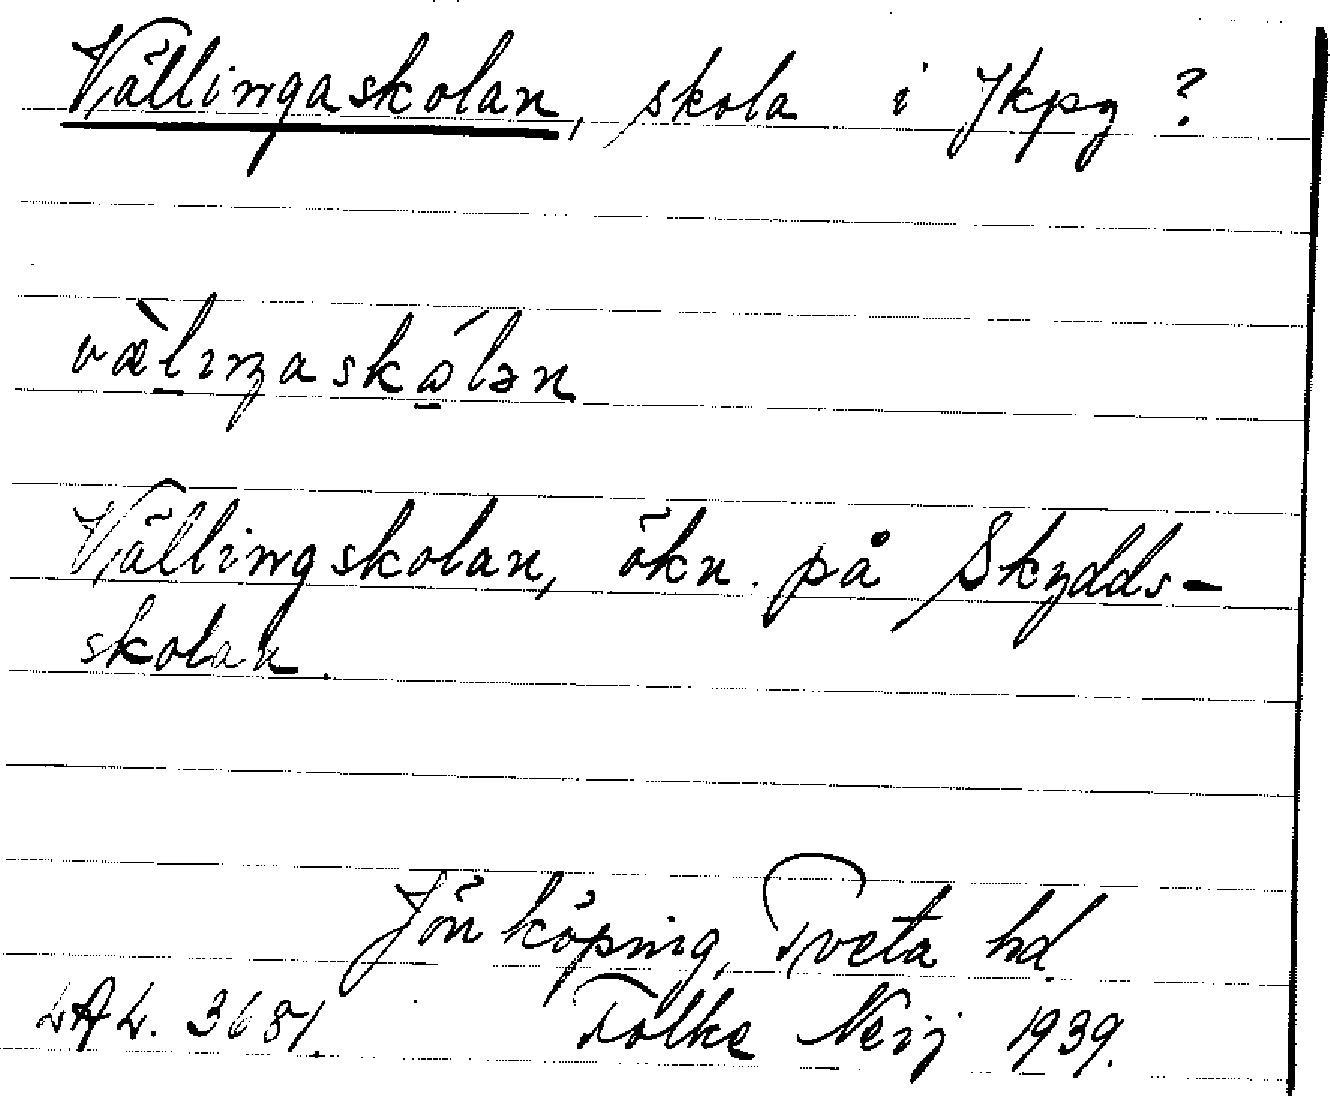 Vällingaskolan, skola i Jkpg ?
vὰlıŋaskólən
Vällingskolan, ökn. på Skydds-
skolan.
Jönköping, Tveta hd.
LAL. 3681. Folke Neij 1939.